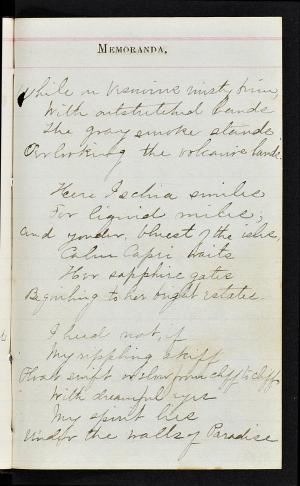 MEMORANDA.
while on Vesuvius misty brim,
With outstretched hands
The gray smoke stands
Overlooking the volcanic lands.
Here Ischia smiles
For liquid miles;
and yonder, bluest of the isles,
Calm Capri waits
Her sapphire gates
Beguiling to her bright estates.
I heed not, if
My rippling skiff
Float swift or slow from cliff to cliff
With dreamful eyes
My spirit lies
Under the walls of Paradise